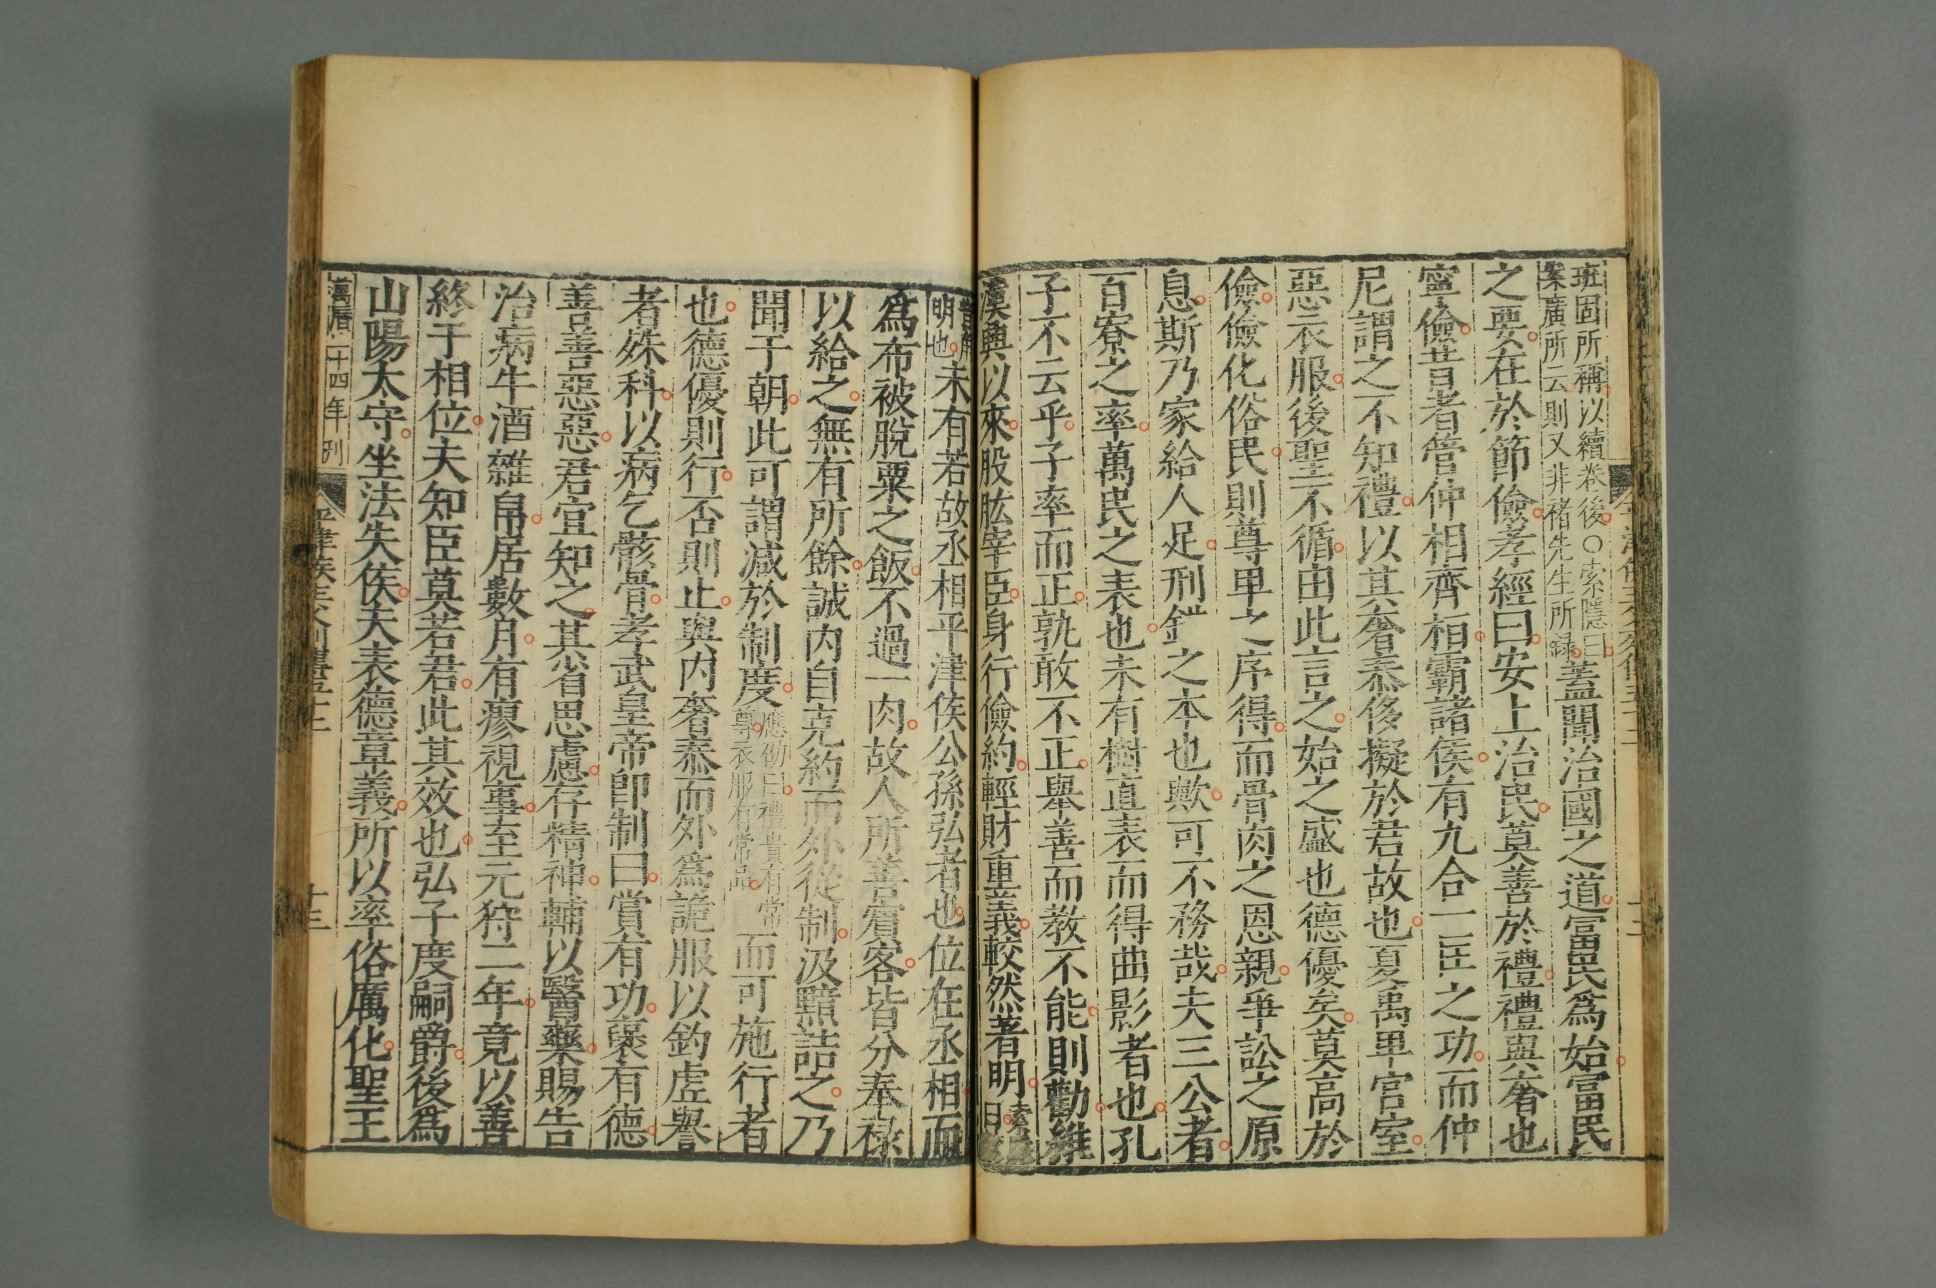 班固所稱以續卷後○索隱曰
案廣所云則又非褚先生所録 蓋聞治國之道富民爲始富民
之要在於節儉孝經曰安上治民莫善於禮禮與奢也
寧儉昔者管仲相齊桓霸諸侯有九合一匡之功而仲
尼謂之不知禮以其奢泰侈擬於君故也夏禹卑宮室
惡衣服後聖不循由此言之始之盛也德優矣莫高於
儉儉化俗民則尊卑之序得而骨肉之恩親爭訟之原
息斯乃家給人足刑錯之本也歟可不務哉夫三公者
百寮之率萬民之表也未有樹直表而得曲影者也孔
子不云乎子率而正孰敢不正舉善而教不能則勸維
漢興以來股肱宰臣身行儉約輕財重義較然著明
明也未有若故丞相平津侯公孫弘者也位在丞相而
爲布被脫粟之飯不過一肉故人所善賓客皆分奉祿
以給之無有所餘誠內自克約而外從制汲黯詰之乃
聞于朝此可謂減於制度應劭曰禮貴有常尊衣服有常品而可施行者
也德優則行否則止與內奢泰而外爲詭服以釣虛譽
者殊科以病乞骸骨孝武皇帝卽制曰賞有功褒有德
善善惡惡君宜知之其省思慮存精神輔以醫藥賜告
治病牛酒雜帛居數月有瘳視事至元狩二年竟以善
終于相位夫知臣莫若君此其效也弘子度嗣爵後爲
山陽太守坐法失侯夫表德章義所以率俗厲化聖王
萬曆二十四年刊
平津侯主父列傳五十二
十三